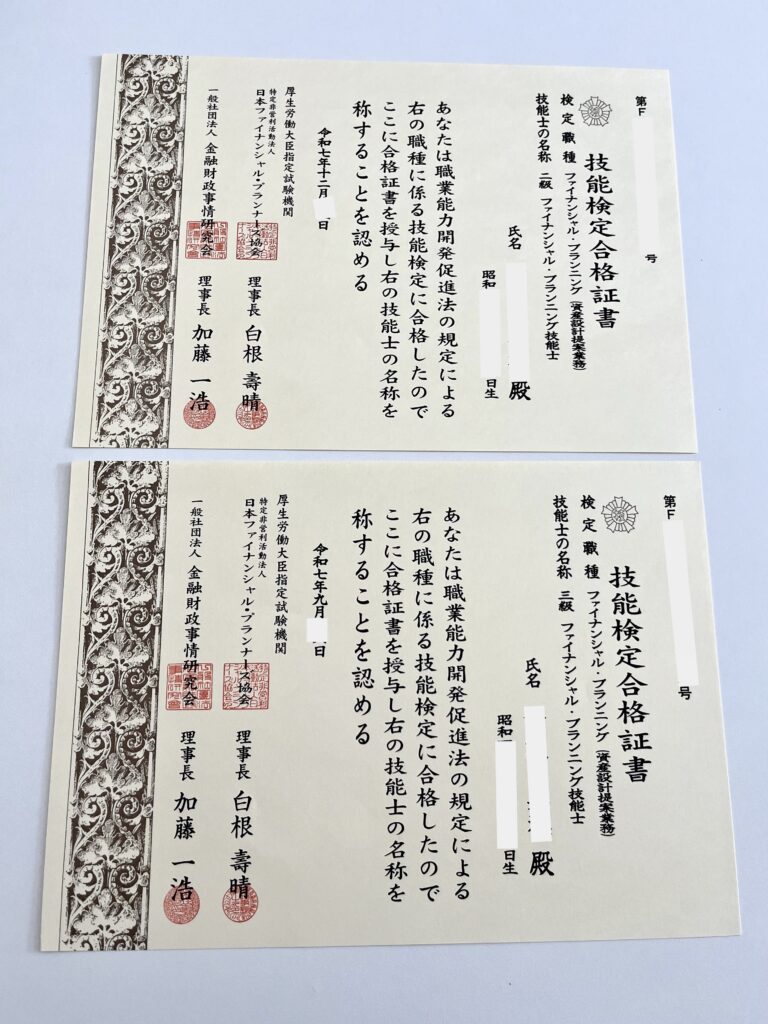 第F
号
技能検定合格証書
検定職種 ファイナンシャル・プランニング(資産設計提案業務)
技能士の名称 二級 ファイナンシャル・プランニング技能士
氏名
殿
昭和
日生
あなたは職業能力開発促進法の規定による
右の職種に係る技能検定に合格したので
ここに合格証書を授与し右の技能士の名称を
称することを認める
令和七年十二月
日
厚生労働大臣指定試験機関
特定非営利活動法人
日本ファイナンシャル・プランナーズ協会
理事長 白根 壽晴
一般社団法人 金融財政事情研究会
理事長 加藤 一浩
第F
号
技能検定合格証書
検定職種 ファイナンシャル・プランニング(資産設計提案業務)
技能士の名称 三級 ファイナンシャル・プランニング技能士
氏名
殿
昭和
日生
あなたは職業能力開発促進法の規定による
右の職種に係る技能検定に合格したので
ここに合格証書を授与し右の技能士の名称を
称することを認める
令和七年九月
日
厚生労働大臣指定試験機関
特定非営利活動法人
日本ファイナンシャル・プランナーズ協会
理事長 白根 壽晴
一般社団法人 金融財政事情研究会
理事長 加藤 一浩